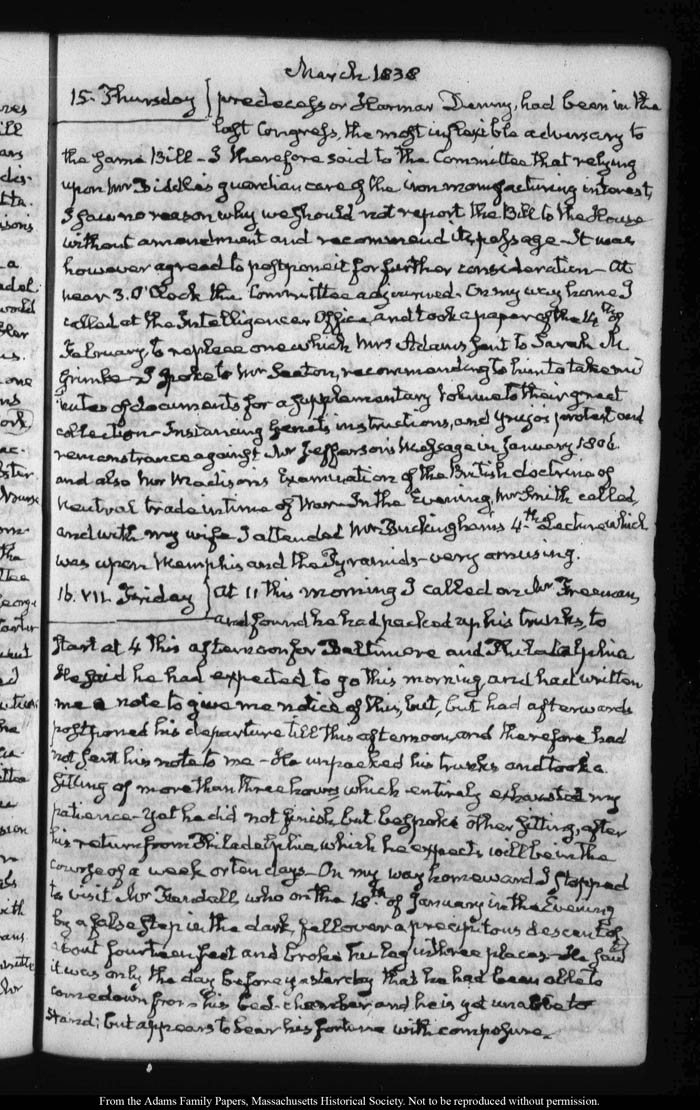 March 1838
15. Thursday predecessor Harmar Denny, had been in the
last Congress, the most inflexible adversary to
the same Bill - I therefore said to the Committee that relying
upon Mr Biddle's guardian care of the iron manufacturing interest,
I saw no reason why we should not report the Bill to the House
without amendment and recommend its passage - It was
however agreed to postpone it for further consideration - At
near 3. O'Clock the Committee adjourned. On my way home I
called at the Intelligencer Office, and took a paper of the 14th of
February, to replace one which Mrs Adams sent to Sarah M
Grimke - I spoke to Mr Seaton, recommending to him to take mi
nutes of documents for a supplementary Volume to their great
collection - Instancing Genets instructions, and Yrujos protest and
remonstrance against Mr Jefferson's Message in January 1806.
and also Mr Madison's Examination of the British doctrine of
neutral trade in time of War - In the Evening, Mr Smith called,
and with my wife I attended Mr Buckingham's 4th Lecture, which
was upon Memphis and the Pyramids - very amusing.
16. VII. Friday At 11 this morning I called on Mr Freeman,
and found he had packed up his trunks, to
start at 4 this afternoon for Baltimore and Philadelphia
He said he had expected to go this morning, and had written
me a note to give me notice of this, but, but had afterwards
postponed his departure till this afternoon, and therefore had
not sent his note to me - He unpacked his trunks and took a
sitting of more than three hours, which entirely exhausted my
patience - Yet he did not finish, but bespoke other sitting, after
his return from Philadelphia, which he expects will be in the
course of a week or ten days - On my way homeward I stopped
to visit Mr Kendall, who on the 18th of January in the Evening
by a false step in the dark, fell over a precipitous descent of
about fourteen feet and broke his leg in three places - He said
it was only the day before yesterday that he had been able to
come down from his bed-chamber, and he is yet unable to
stand; but appears to bear his fortune with composure.
From the Adams Family Papers, Massachusetts Historical Society. Not to be reproduced without permission.